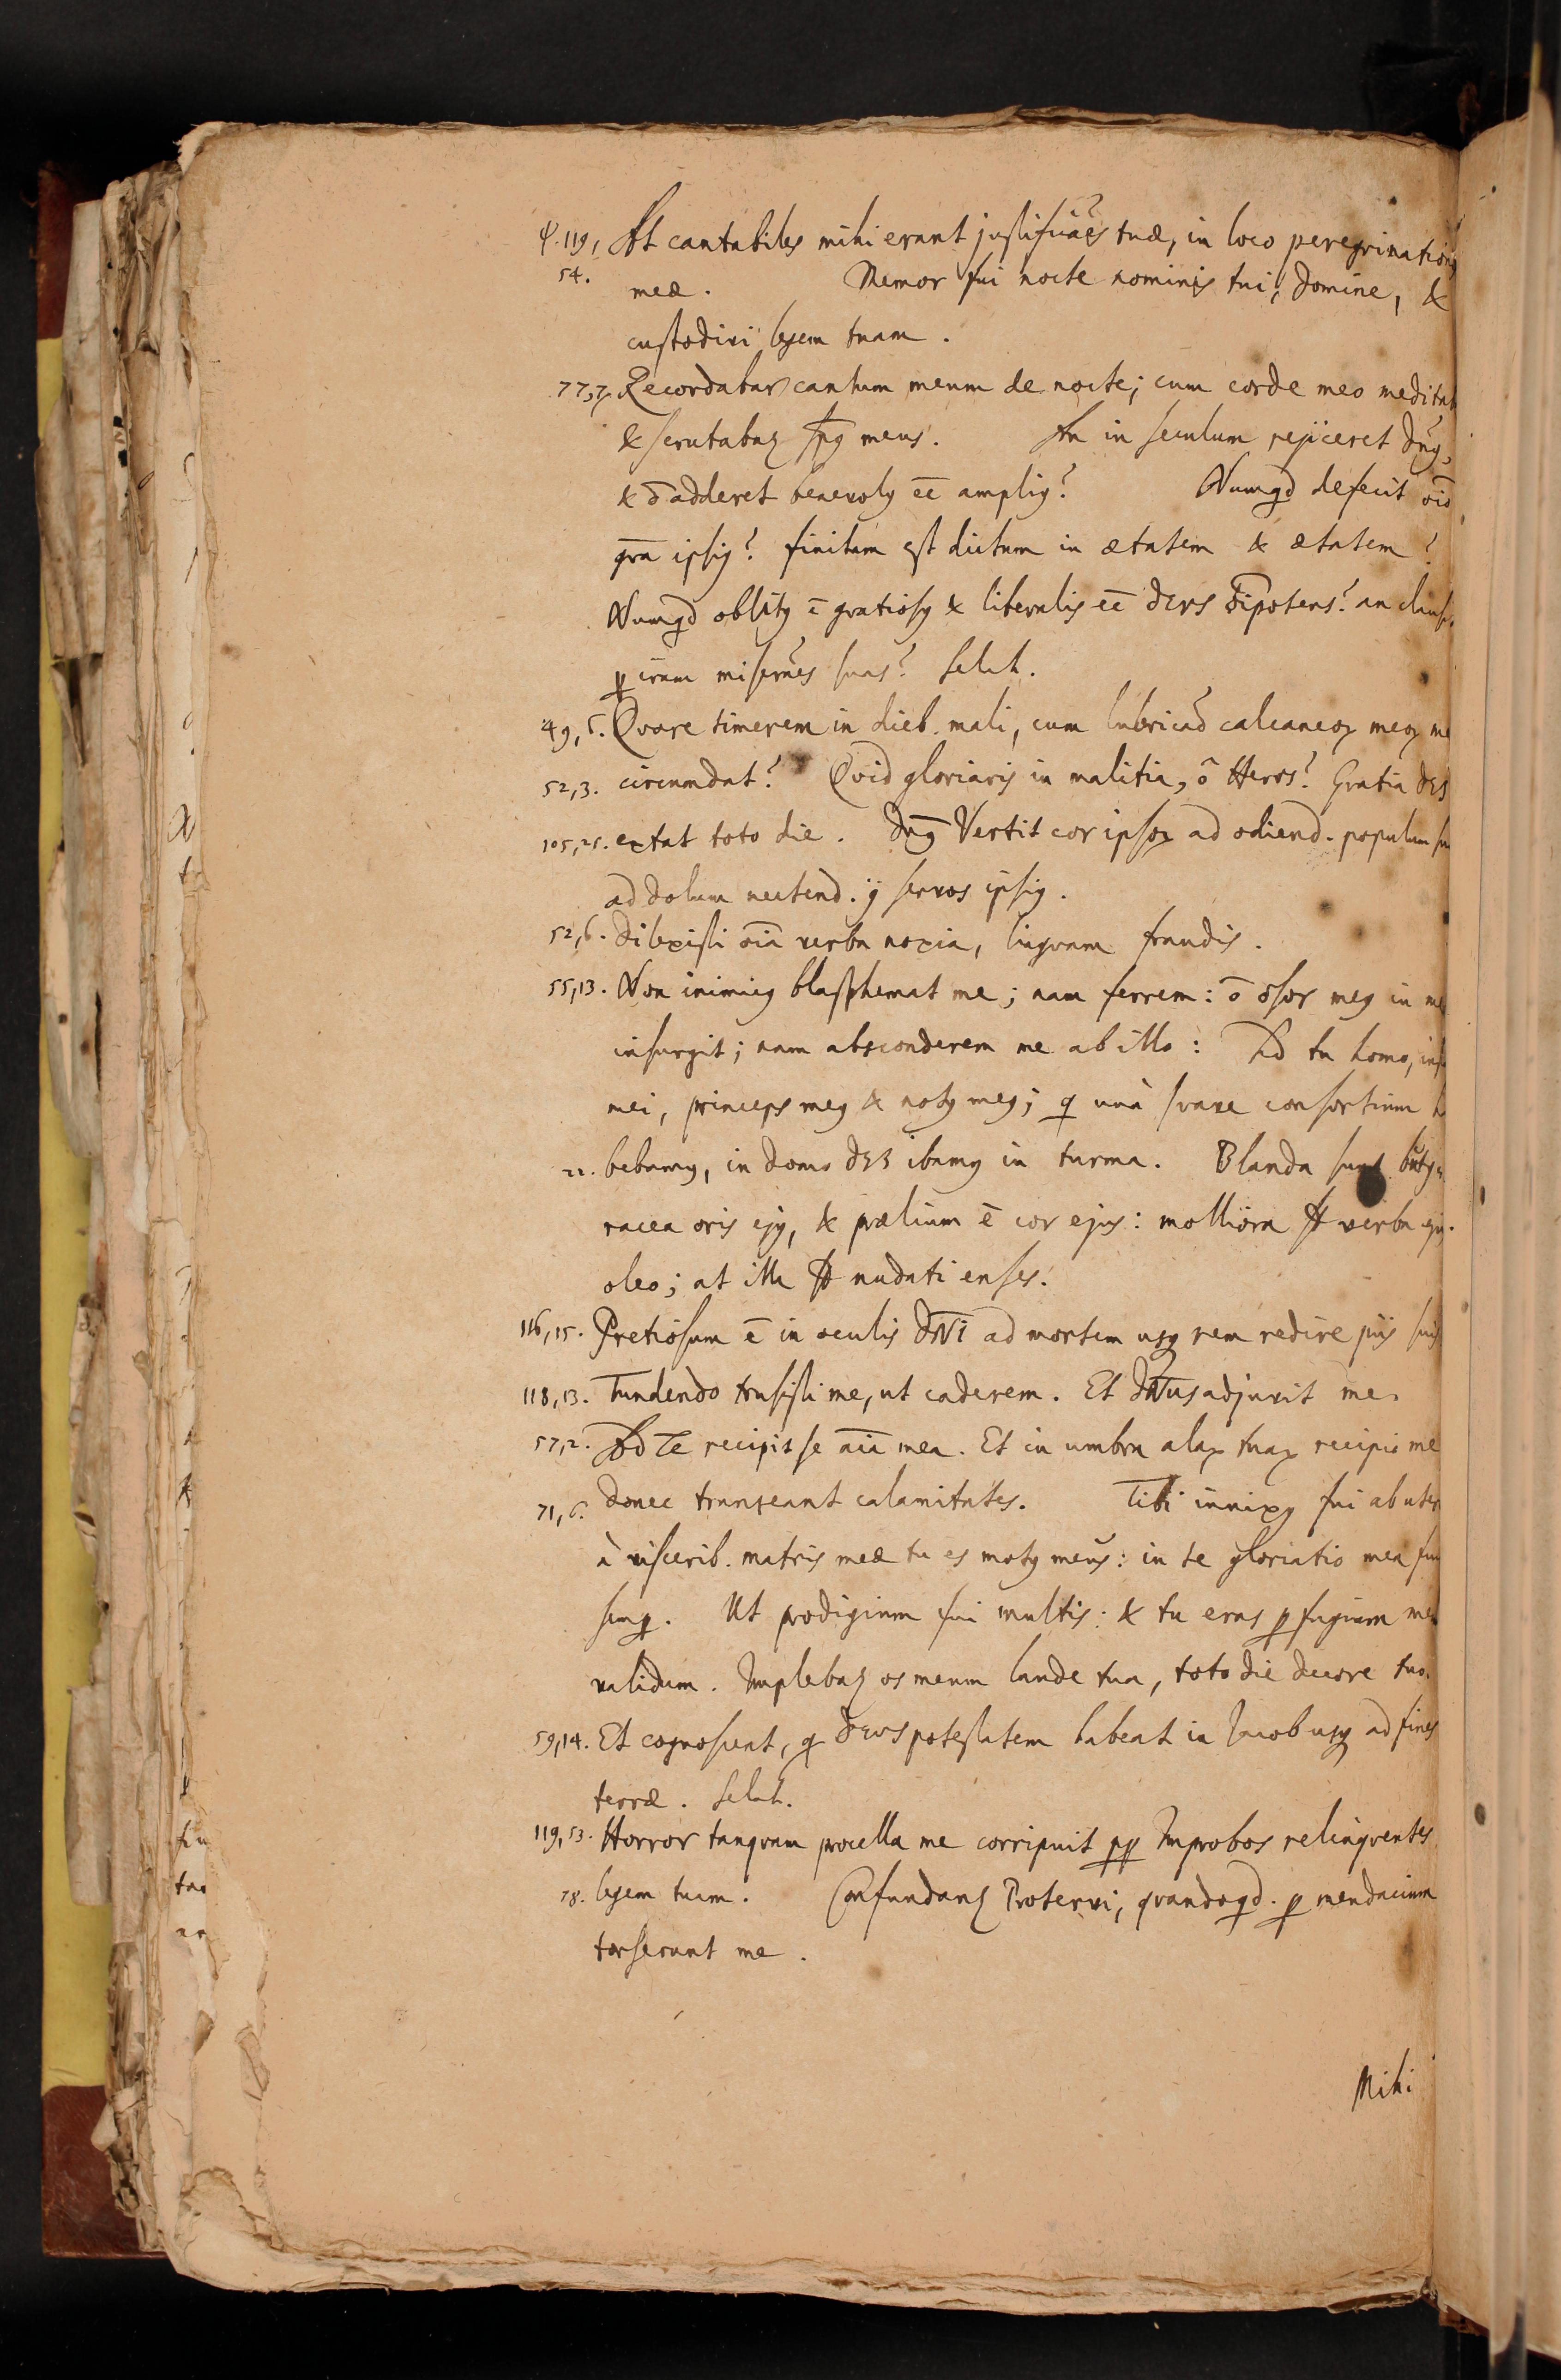 Ψ. 119, At cantabiles mihi erant justificāēs tuæ, in loco peregrinationis
54. meæ. Memor fui nocte nominis tui, Domine, &
custodivi legem tuam.
77,7. Recordabar cantum meum de nocte; cum corde meo meditab
& scrutabaꝫ spꝰ meus. An in seculum rejiceret Dnꝰ,
& ō adderet benevolꝰ ēē ampliꝰ? Numqd defecit oīo
gr̄a ipsiꝰ? finitum est dictum in ætatem & ætatem?
Numqd oblitꝰ ē gratiosꝰ & liberalis ēē DEUS oīpotens? an claus
ꝑ iram miserōēs suas? Selah.
49,6. Qvare timerem in dieb. mali, cum lubricād calcaneoꝝ meoꝝ me
52,3. circumdat? Qvid gloriaris in malitia, ô Heros? Gratia DEI
105,25. extat toto die. Dnꝰ Vertit cor ipsoꝝ ad odiend. populum su
ad dolum nectend. ij servos ipsiꝰ.
52,6. Dilexisti oīa verba noxia, lingvam fraudis.
55,13. Non inimicꝰ blasphemat me; nam ferrem: ō osor meꝰ in me
insurgit; nam absconderem me ab illo: Ad tu homo,
mei, princeps meꝰ & notꝰ meꝰ; q unà svave consortium h
22. bebamꝰ, in domo DEI ibamꝰ in turma. Blanda sunt buty-
racea oris ejꝰ, & prælium ē cor ejus: molliora st verba ejꝰ
oleo; at illa st nudati enses.
116,15. Pretiosum ē in oculis DNI ad mortem usqꝫ rem redire piis suis
118,13. Tundendo trusisti me, ut caderem. Et DNus adjuvit me.
57,2. Ad Te recipit se aīa mea. Et in umbra alaꝝ tuaꝝ recipio me
71,6. donec transeant calamitates. Tibi innixꝰ fui ab utero
à viscerib. matris meæ tu es motꝰ meus: in te gloriatio mea fui
semꝑ. Ut prodigium fui multis: & tu eras ꝑfugium me
validum. Implebaꝫ os meum laude tua, toto die decore tuo.
59,14. Et cognoscent, q DEUS potestatem habeat in Jacob usqꝫ ad fines
terræ. Selah.
119,53. Horror tanqvam procella me corripuit ꝓꝑ Improbos relinqventes
78. legem tuam. Confundanꝫ Protervi, qvandoqd. ꝑ mendacium
torserunt me.
Mihi